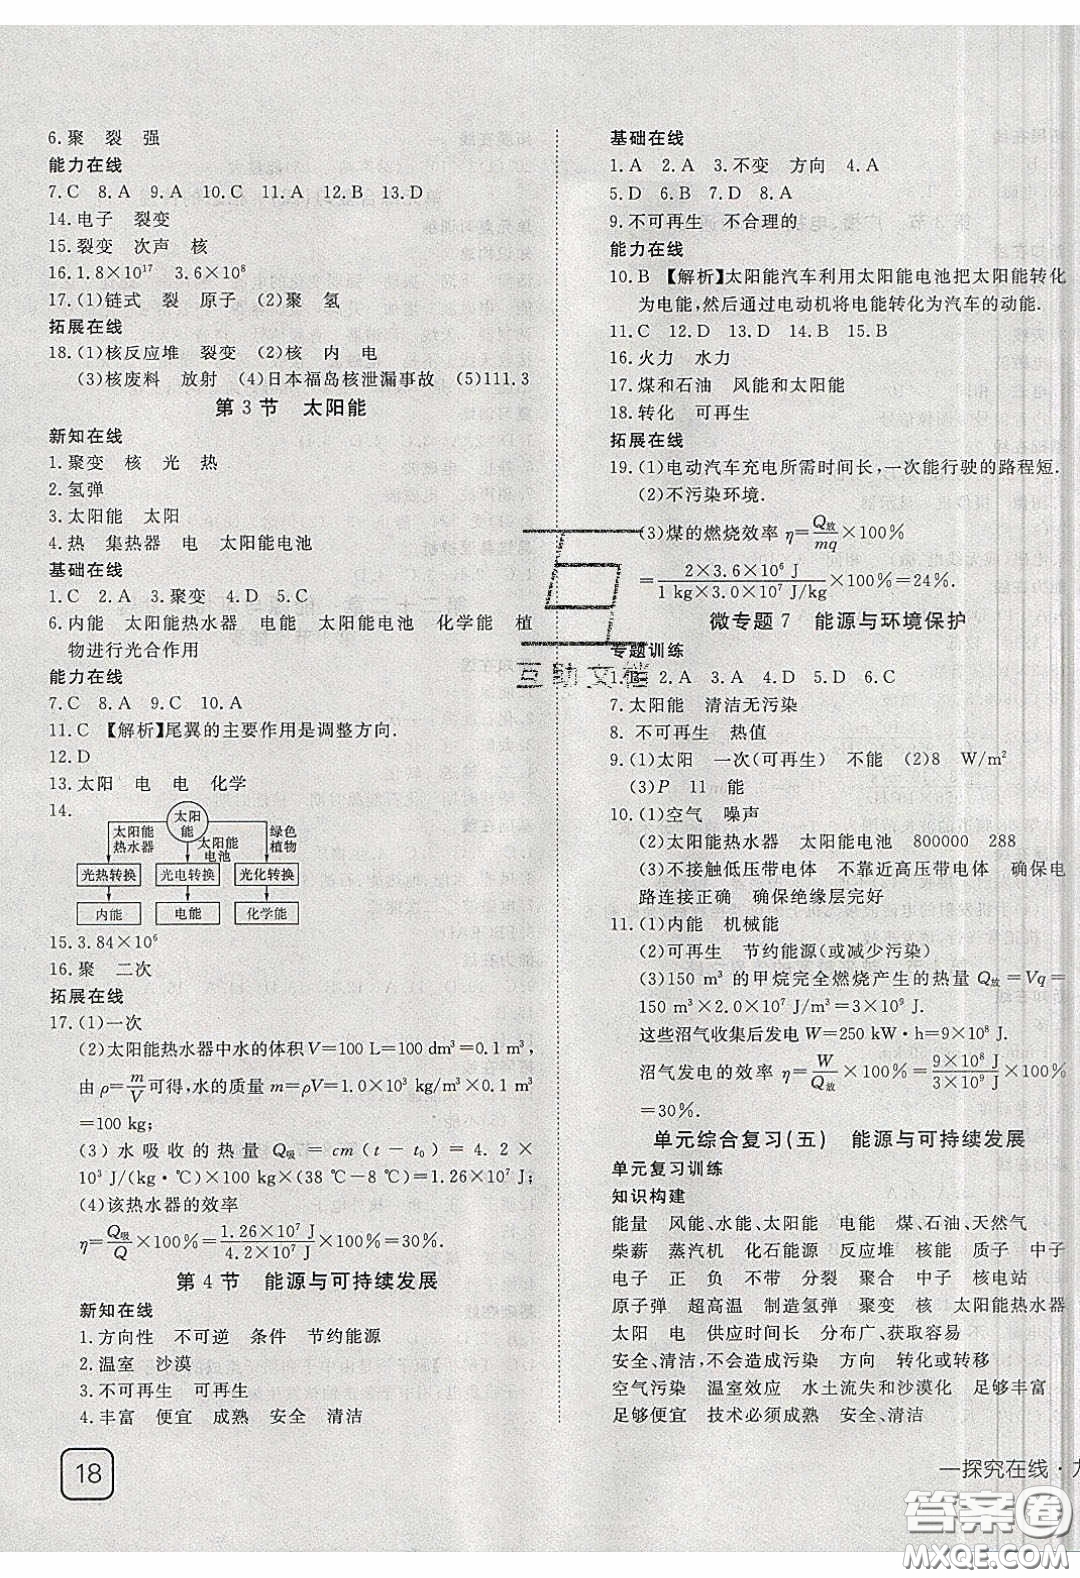 6.聚 裂 强
能力在线
7.C 8.A 9.A 10.C 11.A 12.B 13.D
14.电子 裂变
15.裂变 次声 核
16.1.8×10¹⁷ 3.6×10⁸
17.(1)链式 裂 原子 (2)聚 氢
拓展在线
18.(1)核反应堆 裂变 (2)核 内 电
(3)核废料 放射 (4)日本福岛核泄漏事故 (5)111.3
第3节 太阳能
新知在线
1.聚变 核 光 热
2.氢弹
3.太阳能 太阳
4.热 集热器 电 太阳能电池
基础在线
1.C 2.A 3.聚变 4.D 5.C
6.内能 太阳能热水器 电能 太阳能电池 化学能 植
物进行光合作用
能力在线
7.C 8.A 9.C 10.A
11.C 【解析】尾翼的主要作用是调整方向.
12.D
13.太阳 电 电 化学
14.
太阳能
太阳能热水器
太阳能电池
绿色植物
光热转换 光电转换 光化转换
内能 电能 化学能
15.3.84×10⁶
16.聚 二次
拓展在线
17.(1)一次
(2)太阳能热水器中水的体积V=100 L=100 dm³=0.1 m³,
由ρ=m/V可得,水的质量m=ρV=1.0×10³ kg/m³×0.1 m³
=100 kg;
(3)水吸收的热量Q吸=cm(t-t₀)=4.2×
10³ J/(kg·℃)×100 kg×(38 ℃-8 ℃)=1.26×10⁷ J;
(4)该热水器的效率
η=Q吸/Q×100%=1.26×10⁷ J/4.2×10⁷ J×100%=30%.
第4节 能源与可持续发展
新知在线
1.方向性 不可逆 条件 节约能源
2.温室 沙漠
3.不可再生 可再生
4.丰富 便宜 成熟 安全 清洁
18
基础在线
1.A 2.A 3.不变 方向 4.A
5.D 6.B 7.D 8.A
9.不可再生 不合理的
能力在线
10.B 【解析】太阳能汽车利用太阳能电池把太阳能转化
为电能,然后通过电动机将电能转化为汽车的动能.
11.C 12.D 13.D 14.B 15.B
16.火力 水力
17.煤和石油 风能和太阳能
18.转化 可再生
拓展在线
19.(1)电动汽车充电所需时间长,一次能行驶的路程短.
(2)不污染环境.
(3)煤的燃烧效率η=Q放/mq×100%
=2×3.6×10⁶ J/1 kg×3.0×10⁷ J/kg×100%=24%.
微专题7 能源与环境保护
专题训练
2.A 3.A 4.D 5.D 6.C
7.太阳能 清洁无污染
8. 不可再生 热值
9.(1)太阳 一次(可再生) 不能 (2)8 W/m²
(3)P 11 能
10.(1)空气 噪声
(2)太阳能热水器 太阳能电池 800000 288
(3)不接触低压带电体 不靠近高压带电体 确保电
路连接正确 确保绝缘层完好
11.(1)内能 机械能
(2)可再生 节约能源(或减少污染)
(3)150 m³的甲烷完全燃烧产生的热量Q放=Vq=
150 m³×2.0×10⁷ J/m³=3×10⁹ J.
这些沼气收集后发电W=250 kW·h=9×10⁸ J.
沼气发电的效率η=W/Q放×100%=9×10⁸ J/3×10⁹ J×100%
=30%.
单元综合复习(五) 能源与可持续发展
单元复习训练
知识构建
能量 风能、水能、太阳能 电能 煤、石油、天然气
柴薪 蒸汽机 化石能源 反应堆 核能 质子 中子
电子 正 负 不带 分裂 聚合 中子 核电站
原子弹 超高温 制造氢弹 聚变 核 太阳能热水器
太阳 电 供应时间长 分布广、获取容易
安全、清洁,不会造成污染 方向 转化或转移
空气污染 温室效应 水土流失和沙漠化 足够丰富
足够便宜 技术必须成熟 安全、清洁
—探究在线·
互助文档
答案圈
MXQE.COM